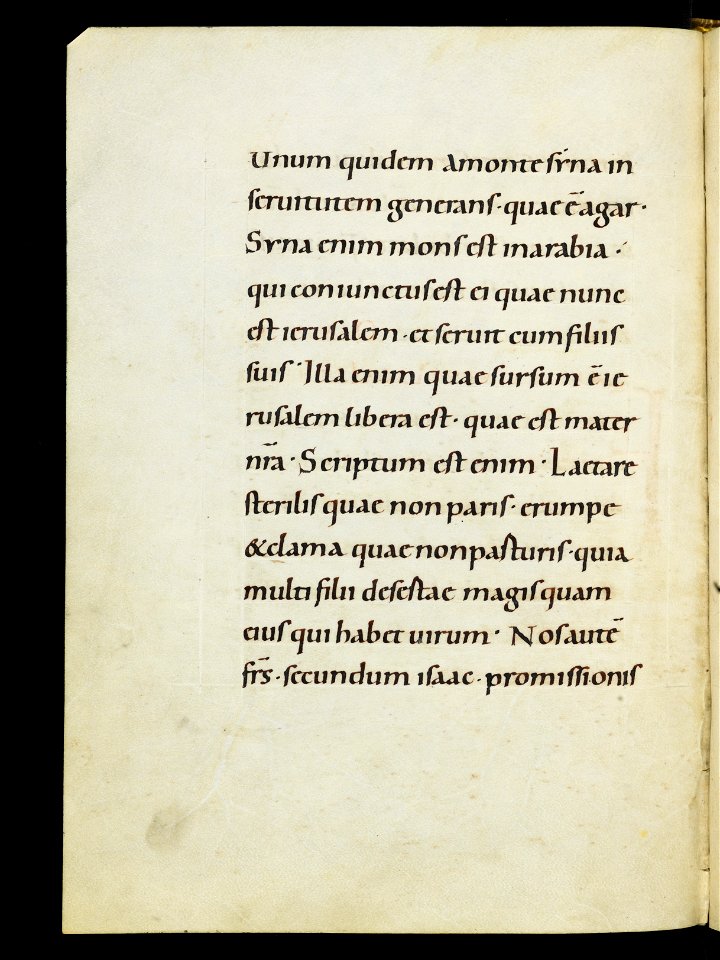 Unum quidem amonte syna in
seruitutem generans · quae ē agar ·
Syna enim mons est in arabia ·
qui coniunctus est ei quae nunc
est ierusalem · et seruit cum filiis
suis · Illa enim quae sursum ē ie
rusalem libera est · quae est mater
nr̄a · Scriptum est enim · Laetare
sterilis quae non paris · erumpe
& clama quae non pasturis · quia
multi filii desestae magis quam
eius qui habet uirum · Nos autē
fr̄s · secundum isaac · promissionis